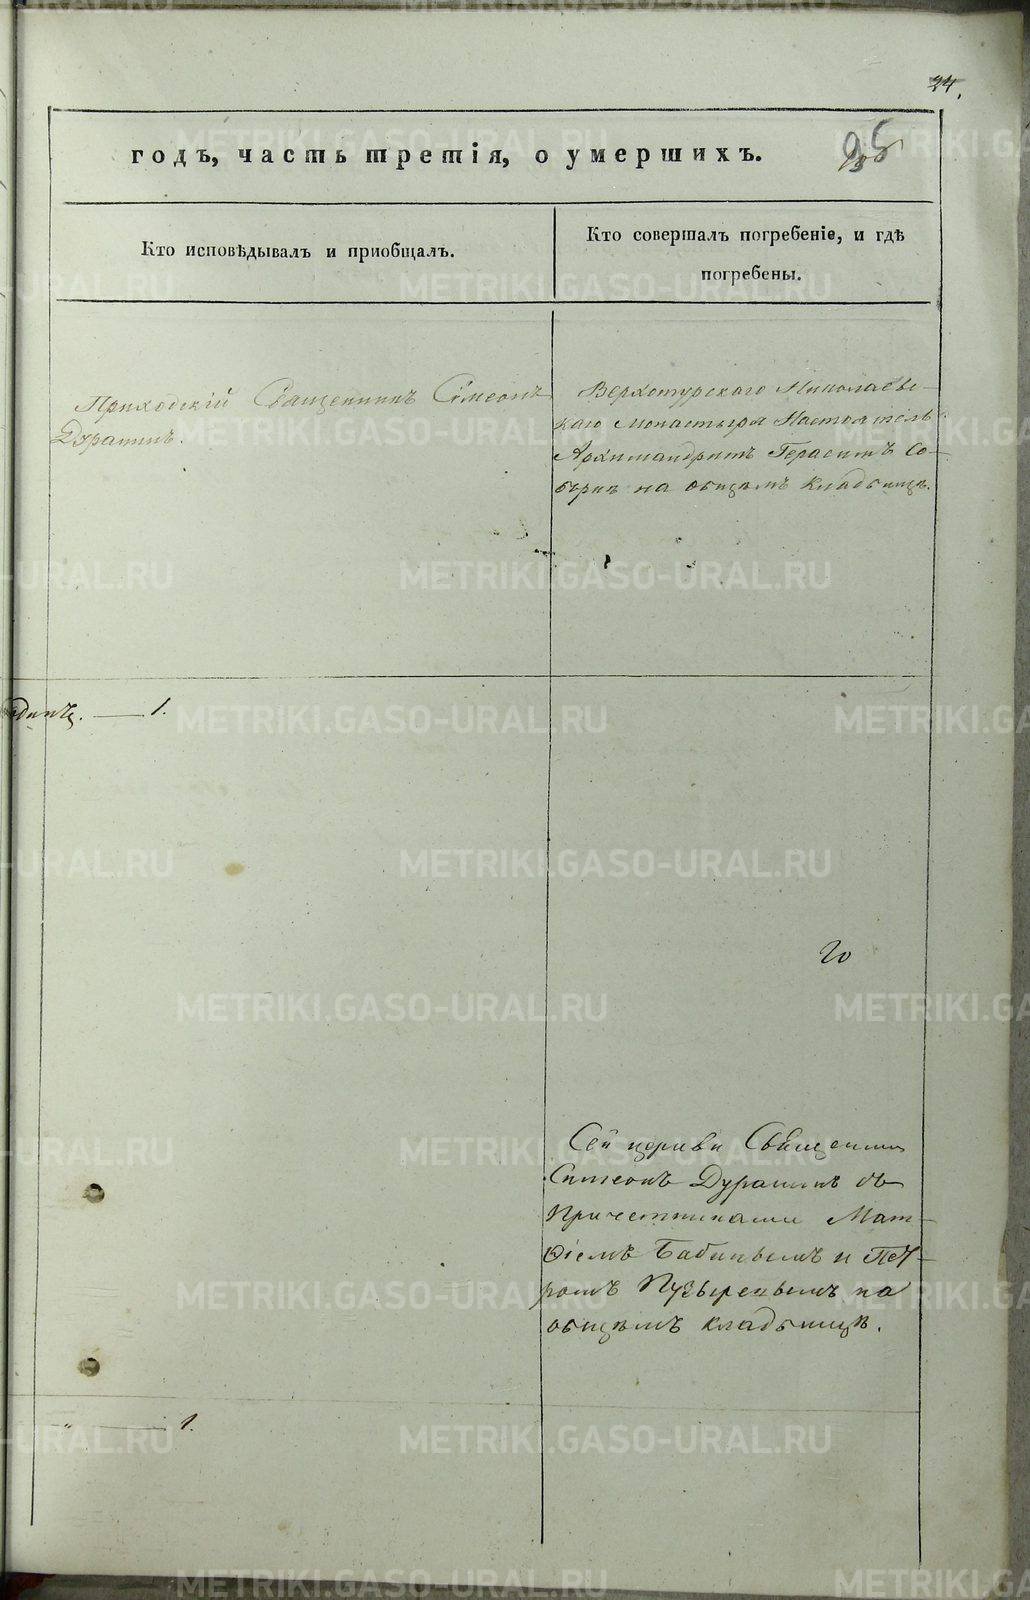 24.
95
годъ, часть третія, о умершихъ.
Кто исповѣдывалъ и приобщалъ.
Кто совершалъ погребеніе, и гдѣ
погребены.
Приходскій Священникъ Сѵмеонъ
Дурапинъ.
Верхотурскаго Николаевс-
каго Монастыря Настоятель
Архимандритъ Герасимъ Со-
борнѣ на общемъ кладбищѣ.
1.
Сей церкви Священникъ
Симеонъ Дурапинъ съ
Причетниками Мат-
ѳіемъ Бабинымъ и Пет-
ромъ Пузыревымъ на
общемъ кладбищѣ.
" 1.
METRIKI.GASO-URAL.RU